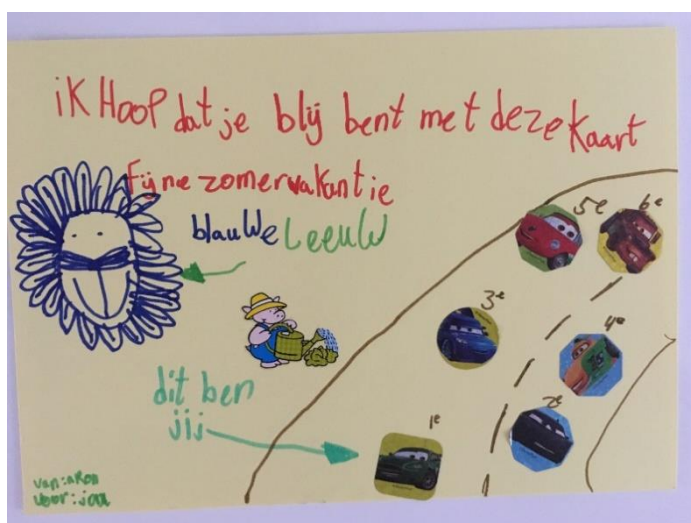 iK HooP dat je blij bent met deze kaart
Fijne zomervakantie
blauwe Leeuw
5e 6e
3e
4e
dit ben
jij
1e 2e
van: aron
voor: jou